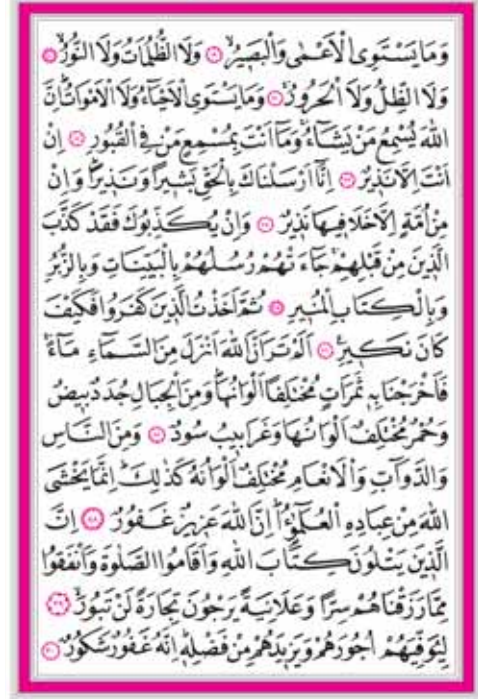 وَمَا يَسْتَوِى الْاَعْمٰى وَالْبَصٖيرُۙ ﴿١٩﴾ وَلَا الظُّلُمَاتُ وَلَا النُّورُۙ ﴿٢٠﴾
وَلَا الظِّلُّ وَلَا الْحَرُورُۚ ﴿٢١﴾ وَمَا يَسْتَوِى الْاَحْيَٓاءُ وَلَا الْاَمْوَاتُؕ اِنَّ
اللّٰهَ يُسْمِعُ مَنْ يَشَٓاءُۚ وَمَٓا اَنْتَ بِمُسْمِعٍ مَنْ فِى الْقُبُورِ ﴿٢٢﴾ اِنْ
اَنْتَ اِلَّا نَذٖيرٌ ﴿٢٣﴾ اِنَّٓا اَرْسَلْنَاكَ بِالْحَقِّ بَشٖيرًا وَنَذٖيرًاؕ وَاِنْ
مِنْ اُمَّةٍ اِلَّا خَلَا فٖيهَا نَذٖيرٌ ﴿٢٤﴾ وَاِنْ يُكَذِّبُوكَ فَقَدْ كَذَّبَ
الَّذٖينَ مِنْ قَبْلِهِمْۚ جَٓاءَتْهُمْ رُسُلُهُمْ بِالْبَيِّنَاتِ وَبِالزُّبُرِ
وَبِالْكِتَابِ الْمُنٖيرِ ﴿٢٥﴾ ثُمَّ اَخَذْتُ الَّذٖينَ كَفَرُوا فَكَيْفَ
كَانَ نَكٖيرِ ﴿٢٦﴾ اَلَمْ تَرَ اَنَّ اللّٰهَ اَنْزَلَ مِنَ السَّمَٓاءِ مَٓاءًۚ
فَاَخْرَجْنَا بِهٖ ثَمَرَاتٍ مُخْتَلِفًا اَلْوَانُهَاؕ وَمِنَ الْجِبَالِ جُدَدٌ بٖيضٌ
وَحُمْرٌ مُخْتَلِفٌ اَلْوَانُهَا وَغَرَابٖيبُ سُودٌ ﴿٢٧﴾ وَمِنَ النَّاسِ
وَالدَّوَٓابِّ وَالْاَنْعَامِ مُخْتَلِفٌ اَلْوَانُهُ كَذٰلِكَؕ اِنَّمَا يَخْشَى
اللّٰهَ مِنْ عِبَادِهِ الْعُلَمٰٓؤُ۬اؕ اِنَّ اللّٰهَ عَزٖيزٌ غَفُورٌ ﴿٢٨﴾ اِنَّ
الَّذٖينَ يَتْلُونَ كِتَابَ اللّٰهِ وَاَقَامُوا الصَّلٰوةَ وَاَنْفَقُوا
مِمَّا رَزَقْنَاهُمْ سِرًّا وَعَلَانِيَةً يَرْجُونَ تِجَارَةً لَنْ تَبُورَۙ ﴿٢٩﴾
لِيُوَفِّيَهُمْ اُجُورَهُمْ وَيَزٖيدَهُمْ مِنْ فَضْلِهٖؕ اِنَّهُ غَفُورٌ شَكُورٌ ﴿٣٠﴾